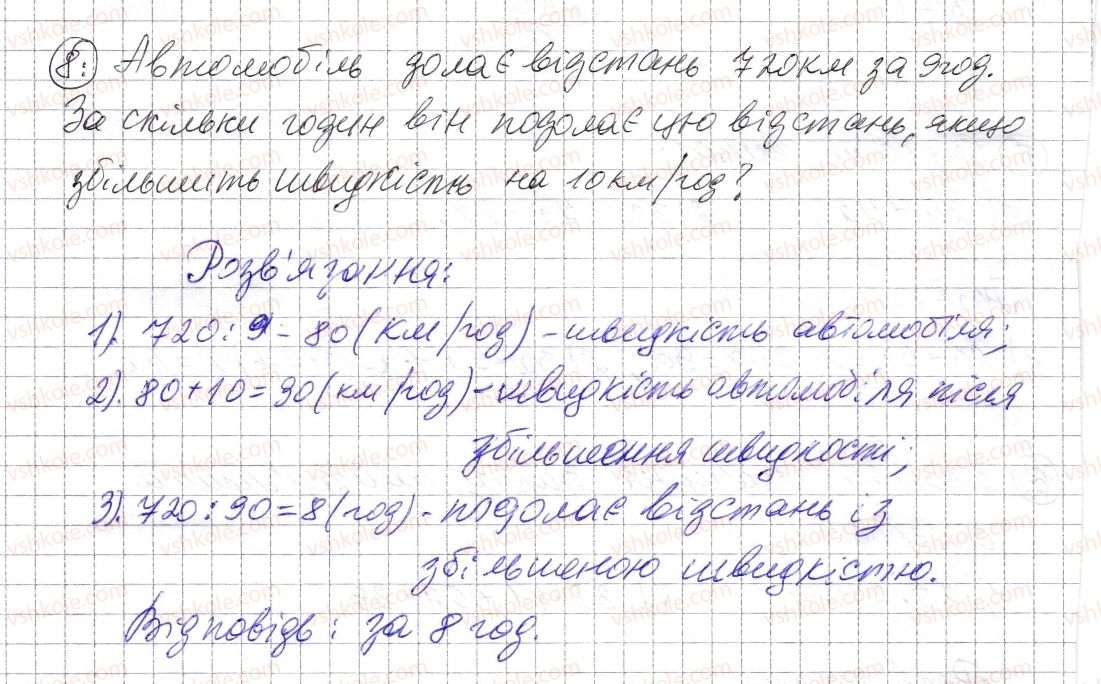 8. Автомобіль долає відстань 720 км за 9 год.
За скільки годин він подолає цю відстань, якщо
збільшить швидкість на 10 км/год?
Розв'язання:
1). 720 : 9 = 80 (км/год) - швидкість автомобіля;
2). 80 + 10 = 90 (км/год) - швидкість автомобіля після
збільшення швидкості;
3). 720 : 90 = 8 (год) - подолає відстань із
збільшеною швидкістю.
Відповідь: за 8 год.
vshkole.com